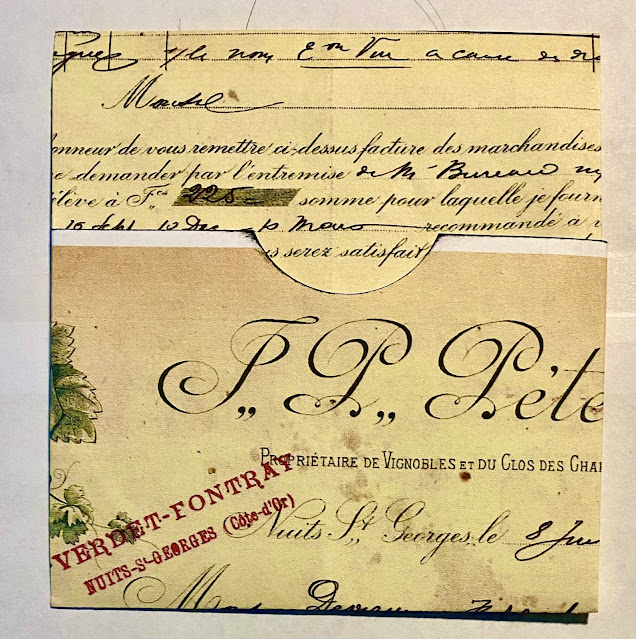 nom E^on Vve a cause de
Monsr
onneur de vous remettre ci-dessus facture des marchandises
e demander par l'entremise de Mr Bureau
élève à Fcs 225 somme pour laquelle je fourn
15 Sept 10 Dec 10 Mars recommandé a
s serez satisfait
J„ P„ Péte
PROPRIÉTAIRE DE VIGNOBLES ET DU CLOS DES CHA
VERDET-FONTRAY
NUITS-St-GEORGES (Côte-d'Or)
Nuits St Georges, le 8 Jui